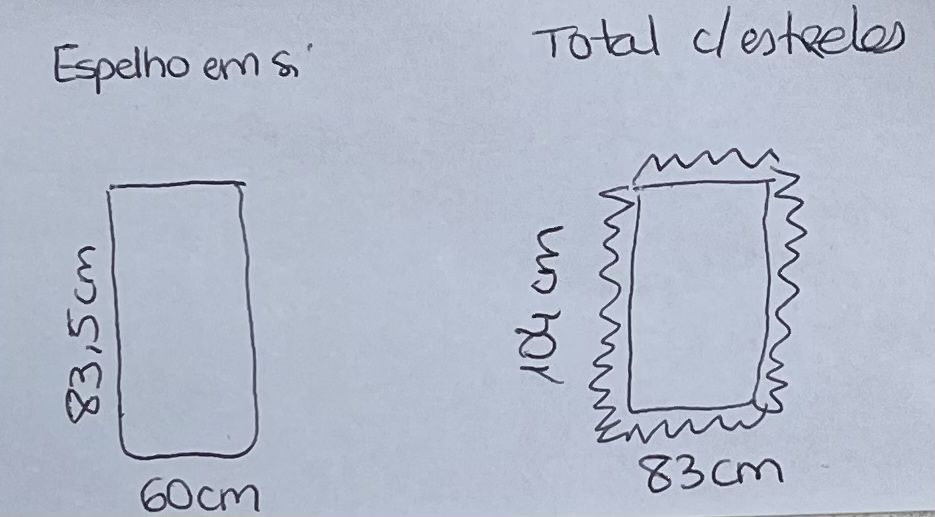 Espelho em si
Total c/ estrelas
83,5cm
60cm
104 cm
83cm